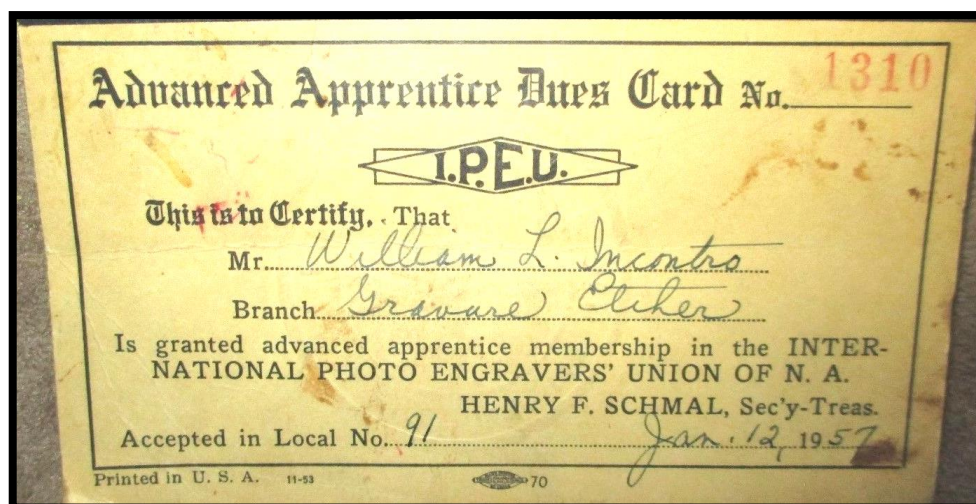 Advanced Apprentice Dues Card No. 1310
I.P.E.U.
This is to Certify, That
Mr. William L. Incontro
Branch Gravure Etcher
Is granted advanced apprentice membership in the INTER-
NATIONAL PHOTO ENGRAVERS' UNION OF N. A.
HENRY F. SCHMAL, Sec'y-Treas.
Accepted in Local No. 91 Jan. 12, 1957
Printed in U. S. A. 11-53 70